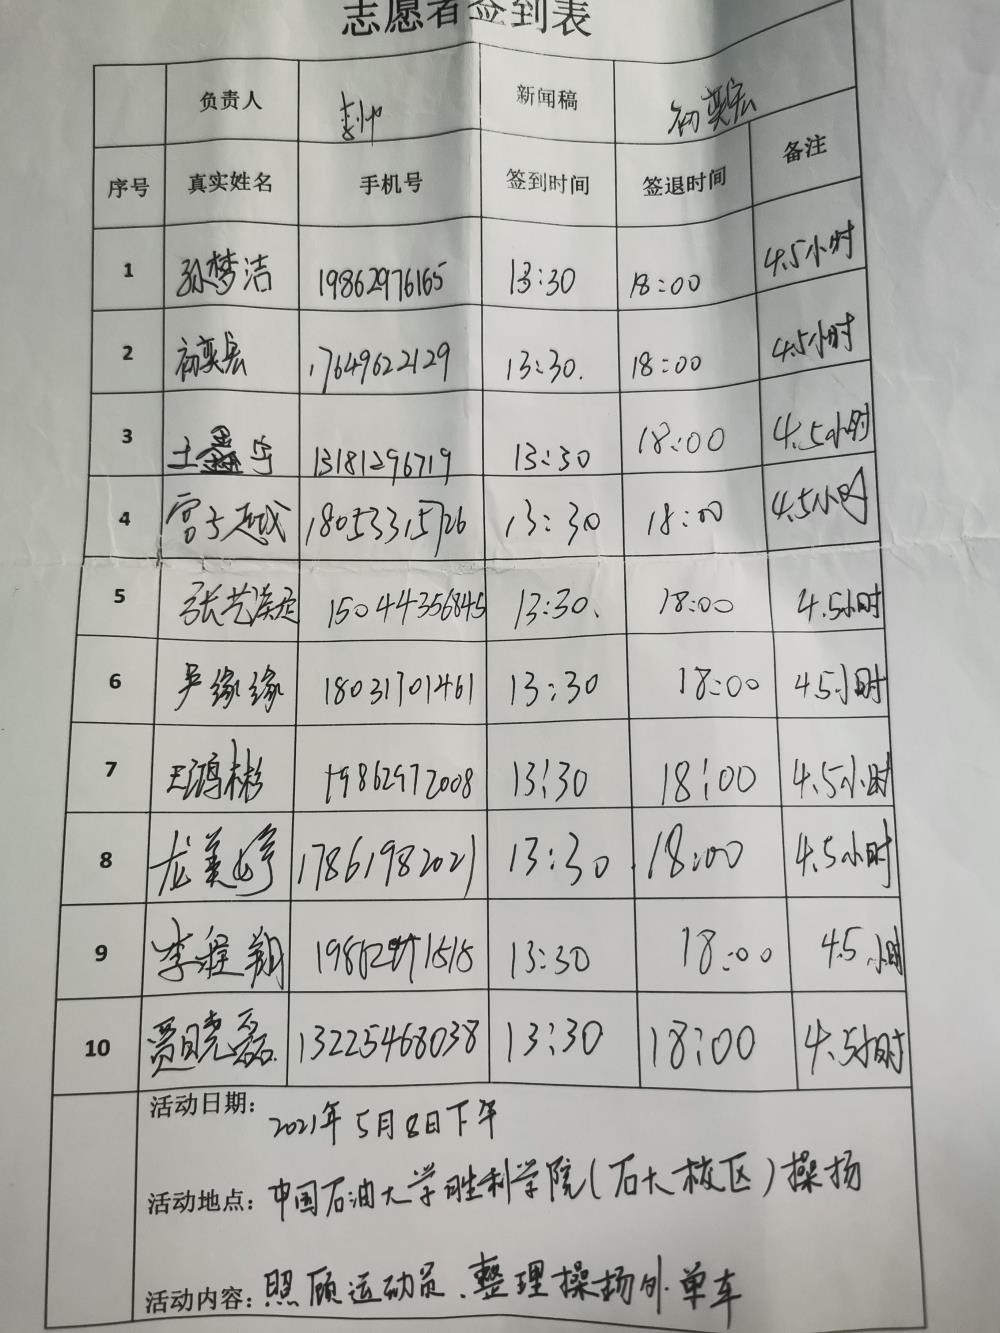 志愿者签到表
负责人 李帅 新闻稿 初奕宏
序号 真实姓名 手机号 签到时间 签退时间 备注
1 孙梦洁 19862976165 13:30 18:00 4.5小时
2 初奕宏 17649622129 13:30. 18:00 4.5小时
3 王鑫宇 13181296719 13:30 18:00 4.5小时
4 18053315726 13:30 18:00 4.5小时
5 张艺 15044356845 13:30. 18:00 4.5小时
6 尹缘缘 18031701461 13:30 18:00 4.5小时
7 王鸿彬 19862972008 13:30 18:00 4.5小时
8 龙美婷 17861982021 13:30 18:00 4.5小时
9 李程翔 13:30 18:00 4.5小时
10 贾晓磊. 13225468038 13:30 18:00 4.5小时
活动日期: 2021年5月8日下午
活动地点: 中国石油大学胜利学院(石大校区)操场
活动内容: 照顾运动员、整理操场外单车